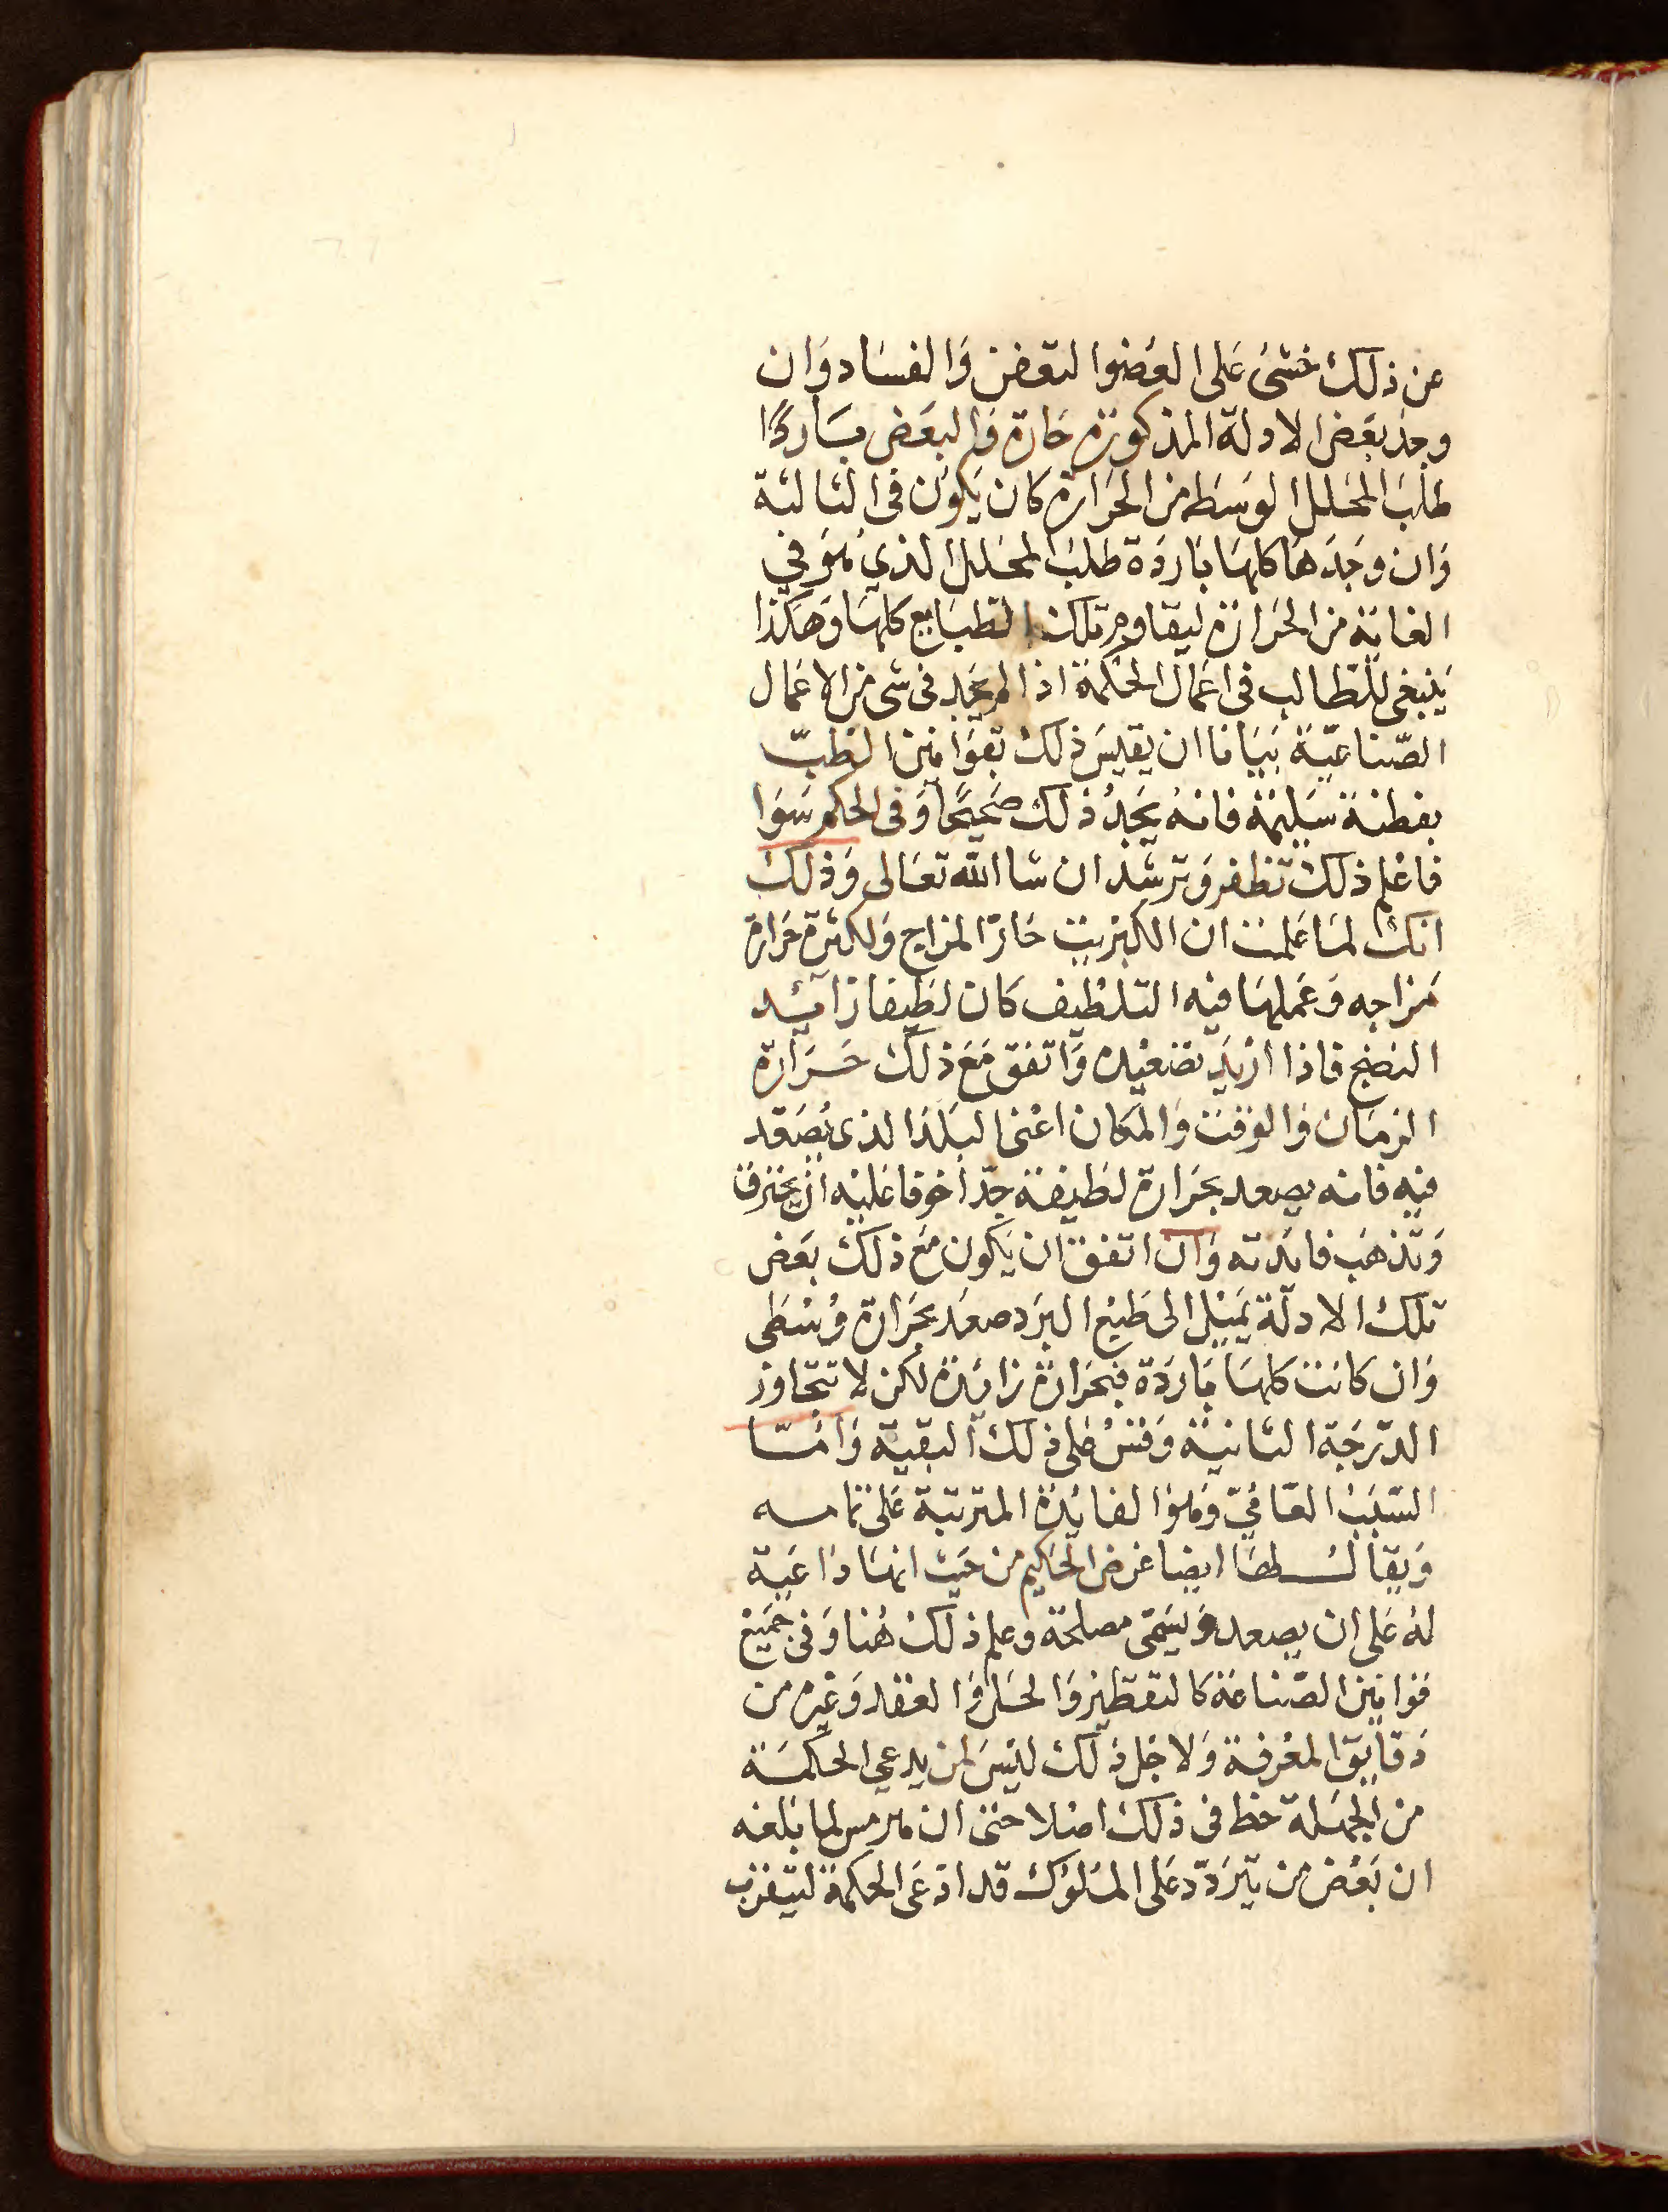 عن ذلك خشى على العضو التعفن والفساد وان
وجد بعض الادلة المذكورة حارة والبعض باردًا
طلب المحلل الوسط من الحرارة كان يكون في الثالثة
وان وجدها كلها باردة طلب المحلل الذي هو في
الغاية من الحرارة ليقاوم تلك الطبايع كلها وهكذا
ينبغي للطالب في اعمال الحكمة اذا لم يجد في شي من الاعمال
الصناعيّة بيانا ان يقيس ذلك بقوانين الطبّ
بفطنة سليمة فانه يجد ذلك صحيحًا وفي الحكم سوا
فاعلم ذلك تظفر وترشد ان شا الله تعالى وذلك
انك لما علمت ان الكبريت حارّ المزاج ولكثرة حرارة
مزاجه وعملها فيه التلطيف كان لطيفا زائد
النضج فاذا اريد تصعيده واتفق مع ذلك حرارة
الزمان والوقت والمكان اعنى البلد الذى يصعد
فيه فانه يصعد بحرارة لطيفة جدّا خوفا عليه ان يحترق
وتذهب فائدته وان اتفق ان يكون مع ذلك بعض
تلك الادلّة يميل الى طبع البرد صعد بحرارة وسطى
وان كانت كلها باردة فبحرارة زائدة لكن لا تتجاوز
الدّرجة الثانية وقس على ذلك البقية وامّا
السّبب الغائيّ وهو الفائدة المترتبة على تمامه
ويقال لها ايضا غرض الحكيم من حيث انها داعية
له على ان يصعد ويسمّى مصلحة وعلم ذلك هنا وفي جميع
قوانين الصّناعة كالتقطير والحل والعقد وغيره من
دقايق المعرفة ولاجل ذلك ليس لمن يدعي الحكمة
من الجهلة حظ في ذلك اصلا حتى ان هرمس لما بلغه
ان بعض من يتردّد على الملوك قد ادّعى الحكمة ليتقرب